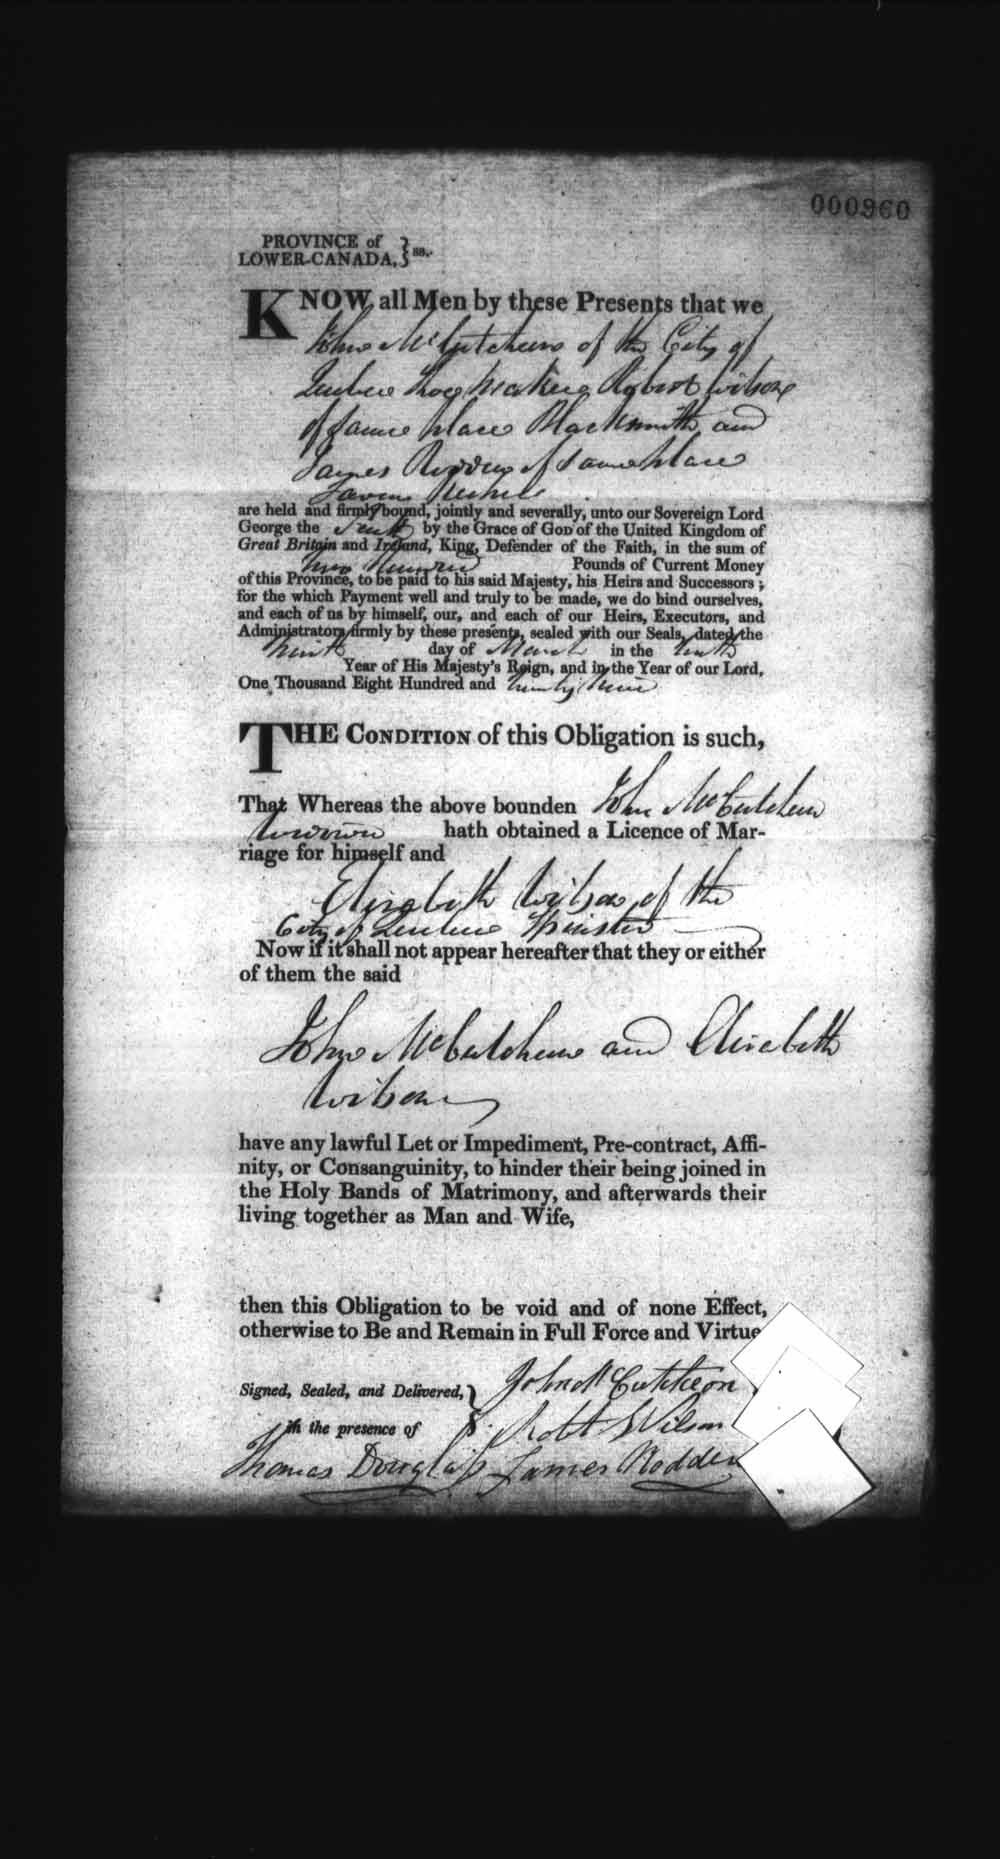 000960
PROVINCE of
LOWER-CANADA, } ss.
KNOW all Men by these Presents that we
John McCutcheon of the City of
Quebec Shoe Maker Robert Wilson
of same place Blacksmith and
James Rodden of same place
Tavern Keeper
are held and firmly bound, jointly and severally, unto our Sovereign Lord
George the Fourth by the Grace of GOD of the United Kingdom of
Great Britain and Ireland, King, Defender of the Faith, in the sum of
Two Hundred Pounds of Current Money
of this Province, to be paid to his said Majesty, his Heirs and Successors ;
for the which Payment well and truly to be made, we do bind ourselves,
and each of us by himself, our, and each of our Heirs, Executors, and
Administrators firmly by these presents, sealed with our Seals, dated the
Ninth day of March in the tenth
Year of His Majesty's Reign, and in the Year of our Lord,
One Thousand Eight Hundred and twenty Nine
THE CONDITION of this Obligation is such,
That Whereas the above bounden John McCutcheon
widower hath obtained a Licence of Mar-
riage for himself and
Elizabeth Wilson of the
City of Quebec Spinster
Now if it shall not appear hereafter that they or either
of them the said
John McCutcheon and Elizabeth
Wilson
have any lawful Let or Impediment, Pre-contract, Affi-
nity, or Consanguinity, to hinder their being joined in
the Holy Bands of Matrimony, and afterwards their
living together as Man and Wife,
then this Obligation to be void and of none Effect,
otherwise to Be and Remain in Full Force and Virtue
Signed, Sealed, and Delivered, } John McCutcheon
in the presence of Robt Wilson
Thomas Douglass James Rodden